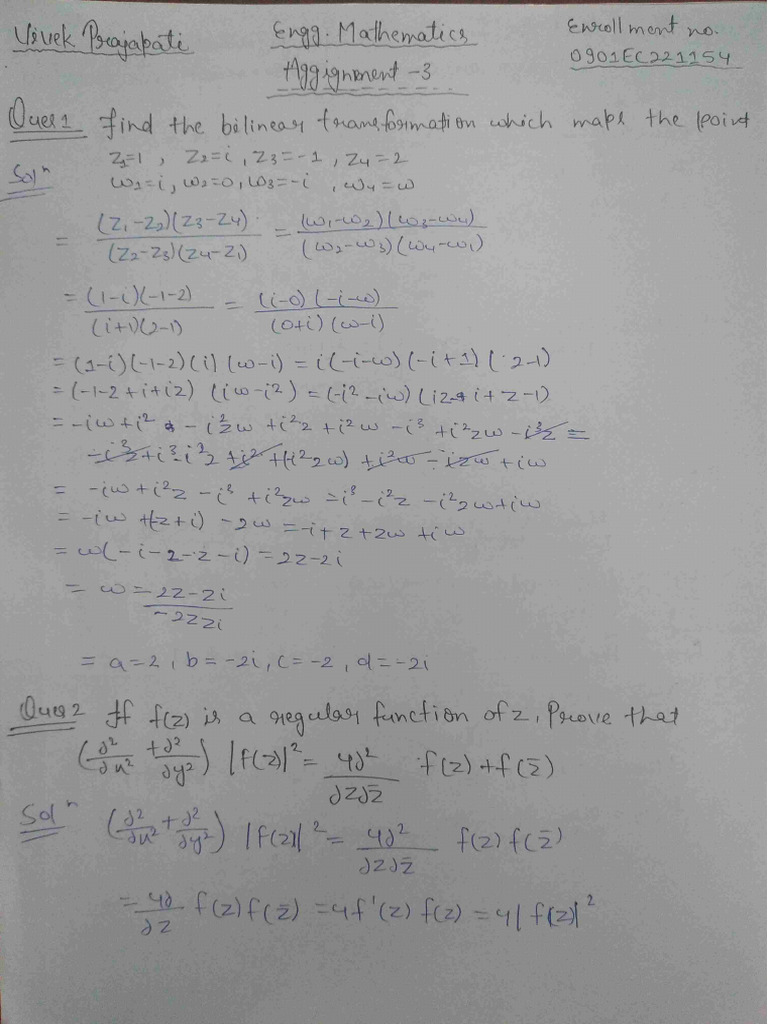 Vivek Prajapati
Engg. Mathematics
Enrollment no.
0901EC221154
Aggignment -3
Ques 1 find the bilinear transformation which maps the point
Z1=1 , Z2=i , Z3=-1 , Z4=2
Solⁿ
ω1=i, ω2=0, ω3=-i , ω4=ω
= (Z1-Z2)(Z3-Z4) / (Z2-Z3)(Z4-Z1) = (ω1-ω2)(ω3-ω4) / (ω2-ω3)(ω4-ω1)
= (1-i)(-1-2) / (i+1)(2-1) = (i-0)(-i-ω) / (0+i)(ω-i)
= (1-i)(-1-2)(i)(ω-i) = i(-i-ω)(-i+1)(2-1)
= (-1-2+i+iz) (iω-i²) = (-i²-iω)(iz i+z-1)
= -iω+i² - i²zω +i²z +i²ω -i³ +i²zω -i³z =
-i³z+i³-i²z +i² +(i²zω) +i²ω -izω +iω
= -iω+i²z -i³ +i²zω =i³-i²z -i²zω+iω
= -iω +(-z+i) -zω =-i+z+zω +iω
= ω(-i-z-z-i) = 2z-2i
= ω = 2z-2i / -2z2i
= a=2, b=-2i, c=-2, d=-2i
Ques 2 If f(z) is a regular function of z, Prove that
(∂²/∂x² + ∂²/∂y²) |f(z)|² = 4∂²/∂z∂z̄ f(z)+f(z̄)
Solⁿ (∂²/∂x² + ∂²/∂y²) |f(z)|² = 4∂²/∂z∂z̄ f(z) f(z̄)
= 4∂/∂z f(z) f(z̄) = 4f'(z) f(z) = 4|f(z)|²